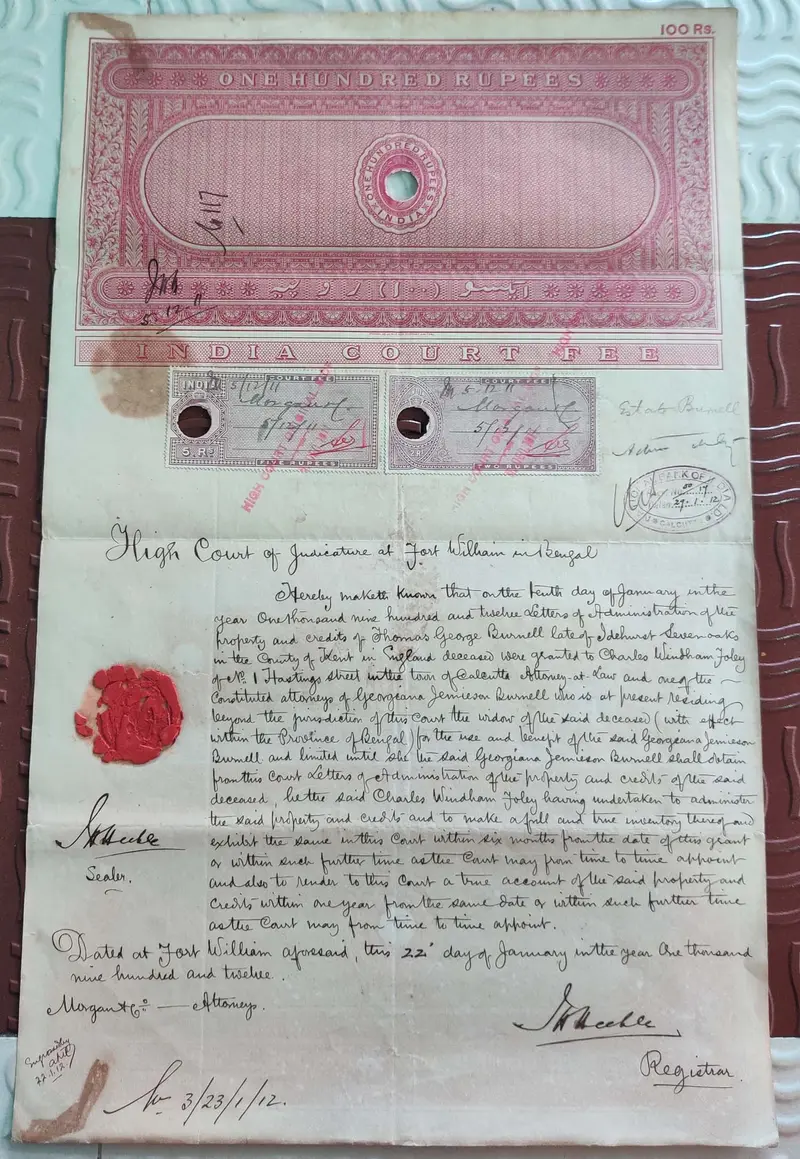 100 Rs.
ONE HUNDRED RUPEES
ONE HUNDRED RUPEES
INDIA
5.12.11
ایکسو (۱۰۰) روپیہ
INDIA COURT FEE
INDIA COURT FEE
5/12/11
Morgan & Co.
5/12/11
5 Rs
FIVE RUPEES
COURT FEE
5-12-11
Morgan & Co.
5/12/11
TWO RUPEES
HIGH COURT
HIGH COURT
Estate Burnell
BANK OF
27-1-12
CALCUTTA
High Court of Judicature at Fort William in Bengal
Hereby maketh Known that on the tenth day of January in the
year One thousand nine hundred and twelve Letters of Administration of the
property and credits of Thomas George Burnell late of Idehurst Sevenoaks
in the County of Kent in England deceased were granted to Charles Windham Foley
of No. 1 Hastings street in the town of Calcutta Attorney-at-Law and one of the
Constituted attorneys of Georgiana Jemieson Burnell who is at present residing
beyond the jurisdiction of this Court the widow of the said deceased (with effect
within the Province of Bengal) for the use and benefit of the said Georgiana Jemieson
Burnell and limited until she the said Georgiana Jemieson Burnell shall obtain
from this Court Letters of Administration of the property and credits of the said
deceased, he the said Charles Windham Foley having undertaken to administer
the said property and credits and to make a full and true inventory thereof and
exhibit the same in this Court within six months from the date of this grant
or within such further time as the Court may from time to time appoint
and also to render to this Court a true account of the said property and
Credits within one year from the same date or within such further time
as the Court may from time to time appoint.
Sealer.
Dated at Fort William aforesaid, this 22 day of January in the year One thousand
nine hundred and twelve.
Morgan & Co. — Attorneys.
Registrar.
22.1.12
No 3/23/1/12.